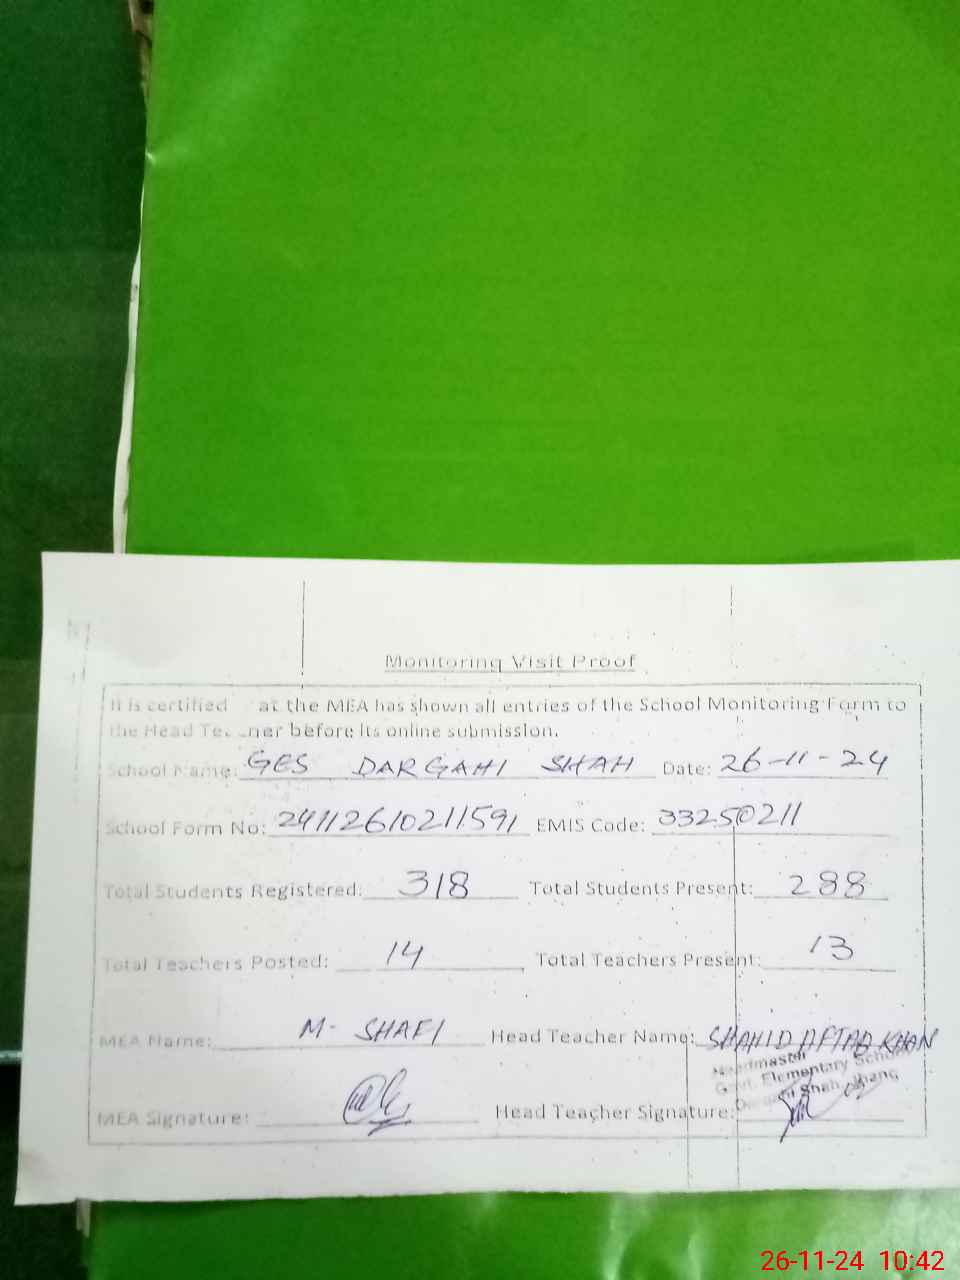 Monitoring Visit Proof
It is certified at the MEA has shown all entries of the School Monitoring Form to
the Head Te ner before its online submission.
School Name: GES DARGAHI SHAH Date: 26-11-24
School Form No: 24112610211591 EMIS Code: 33250211
Total Students Registered: 318 Total Students Present: 288
Total Teachers Posted: 14 Total Teachers Present: 13
MEA Name: M- SHAFI Head Teacher Name: SHAHID AFTAB KHAN
Headmaster
Govt. Elementary School
Dargahi Shah, Jhang
MEA Signature: Head Teacher Signature:
26-11-24 10:42